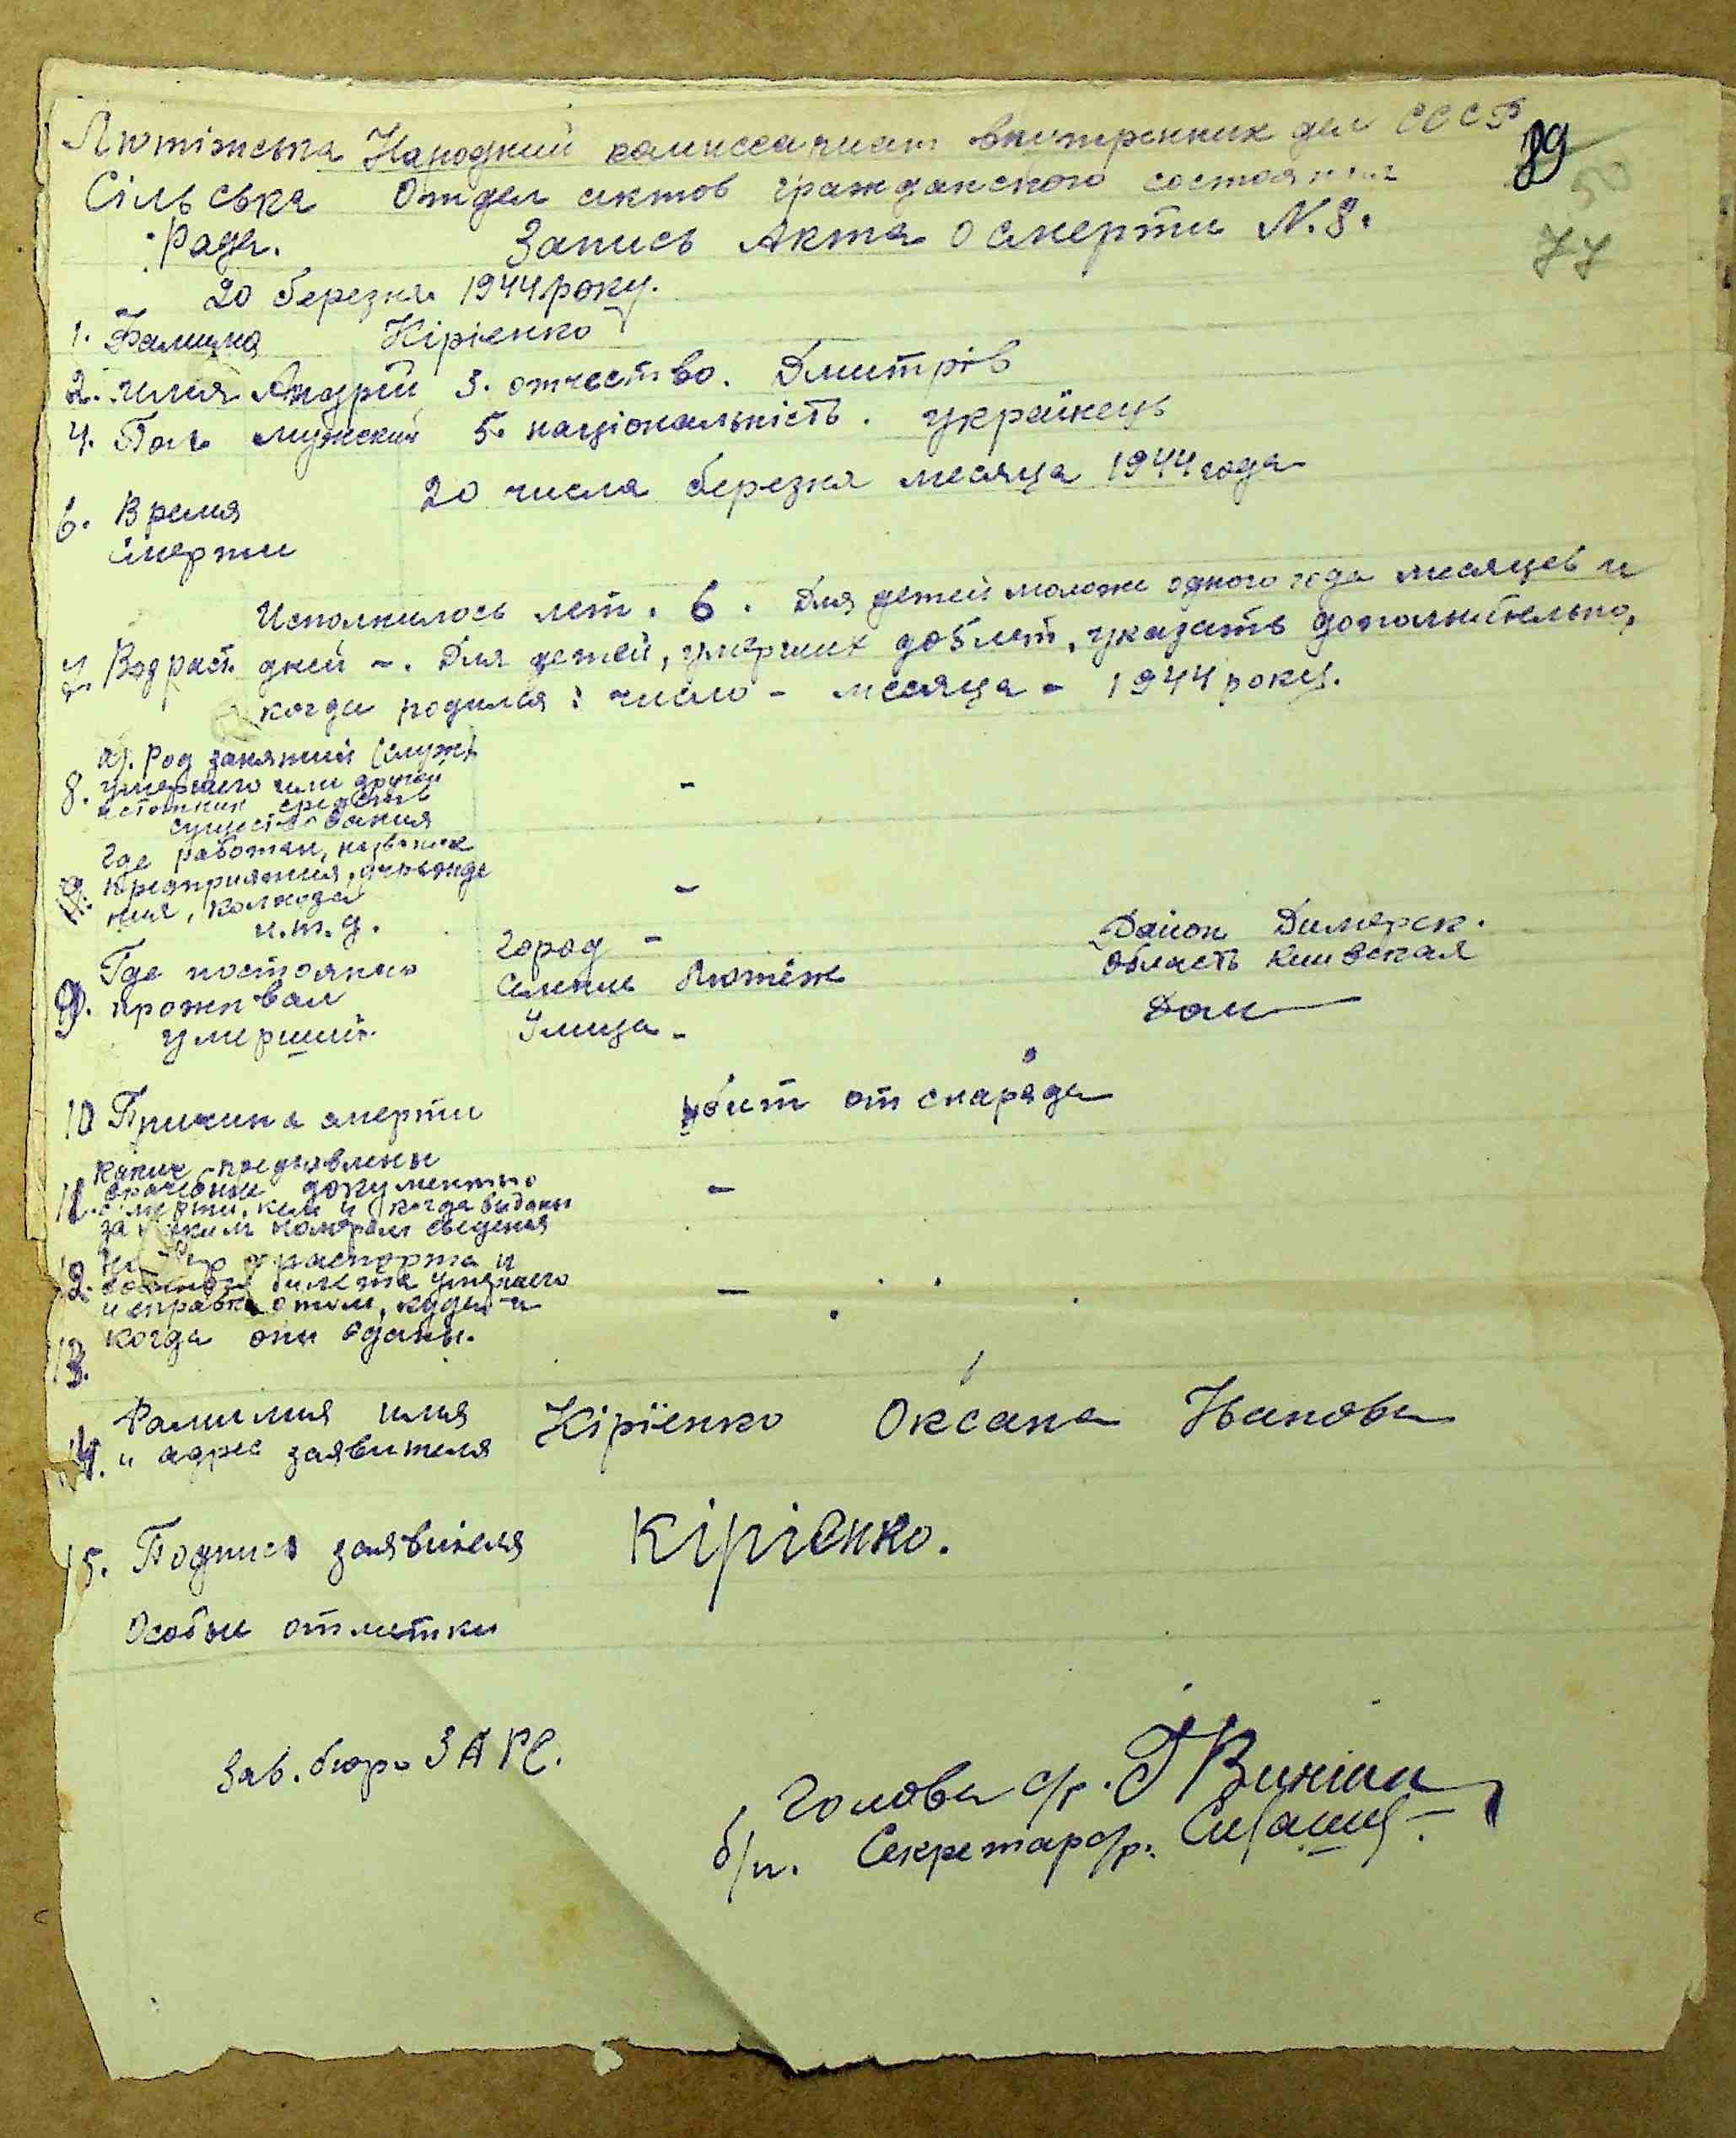 Лютіжська Народний комиссариат внутренних дел СССР
39
50
77
Сільська Отдел актов гражданского состояния
Рада. Запись Акта о смерти N. 8.
20 березня 1944 року.
1. Фамилия Кірієнко
2. имя Андрій 3. отчество. Дмитрів
4. Пол мужский 5. національність. українець
6. Время 20 числа березня месяца 1944 года
смерти
Исполнилось лет. 6. Для детей моложе одного года месяцев и
7. Возраст дней -. Для детей, умерших до 5 лет, указать дополнительно,
когда родился: число - месяца - 1944 року.
а). Род занятий (служ)
8. умершего или другой -
источник средств
существования
Где работал, название
9. предприятия, учрежде -
ния, колхоза
и.т.д.
Где постоянно город - Район Димерск.
9. проживал селение Лютеж область Киевская
умерший. Улица - Дом —
10 Причина смерти убит от снаряда
Какие предъявлены
11. врачебные документы о -
смерти, кем и когда выданы
за каким номером сведения
12. паспорта и
билета умершего -
и справка о том, куда и
13. когда они сданы.
Фамилия имя Кірієнко Оксана Іванова
14. и адрес заявителя
15. Подпись заявителя Кірієнко.
Особые отметки
Зав. бюро ЗАГС.
Голова с/р.
б/п. Секретар с/р.